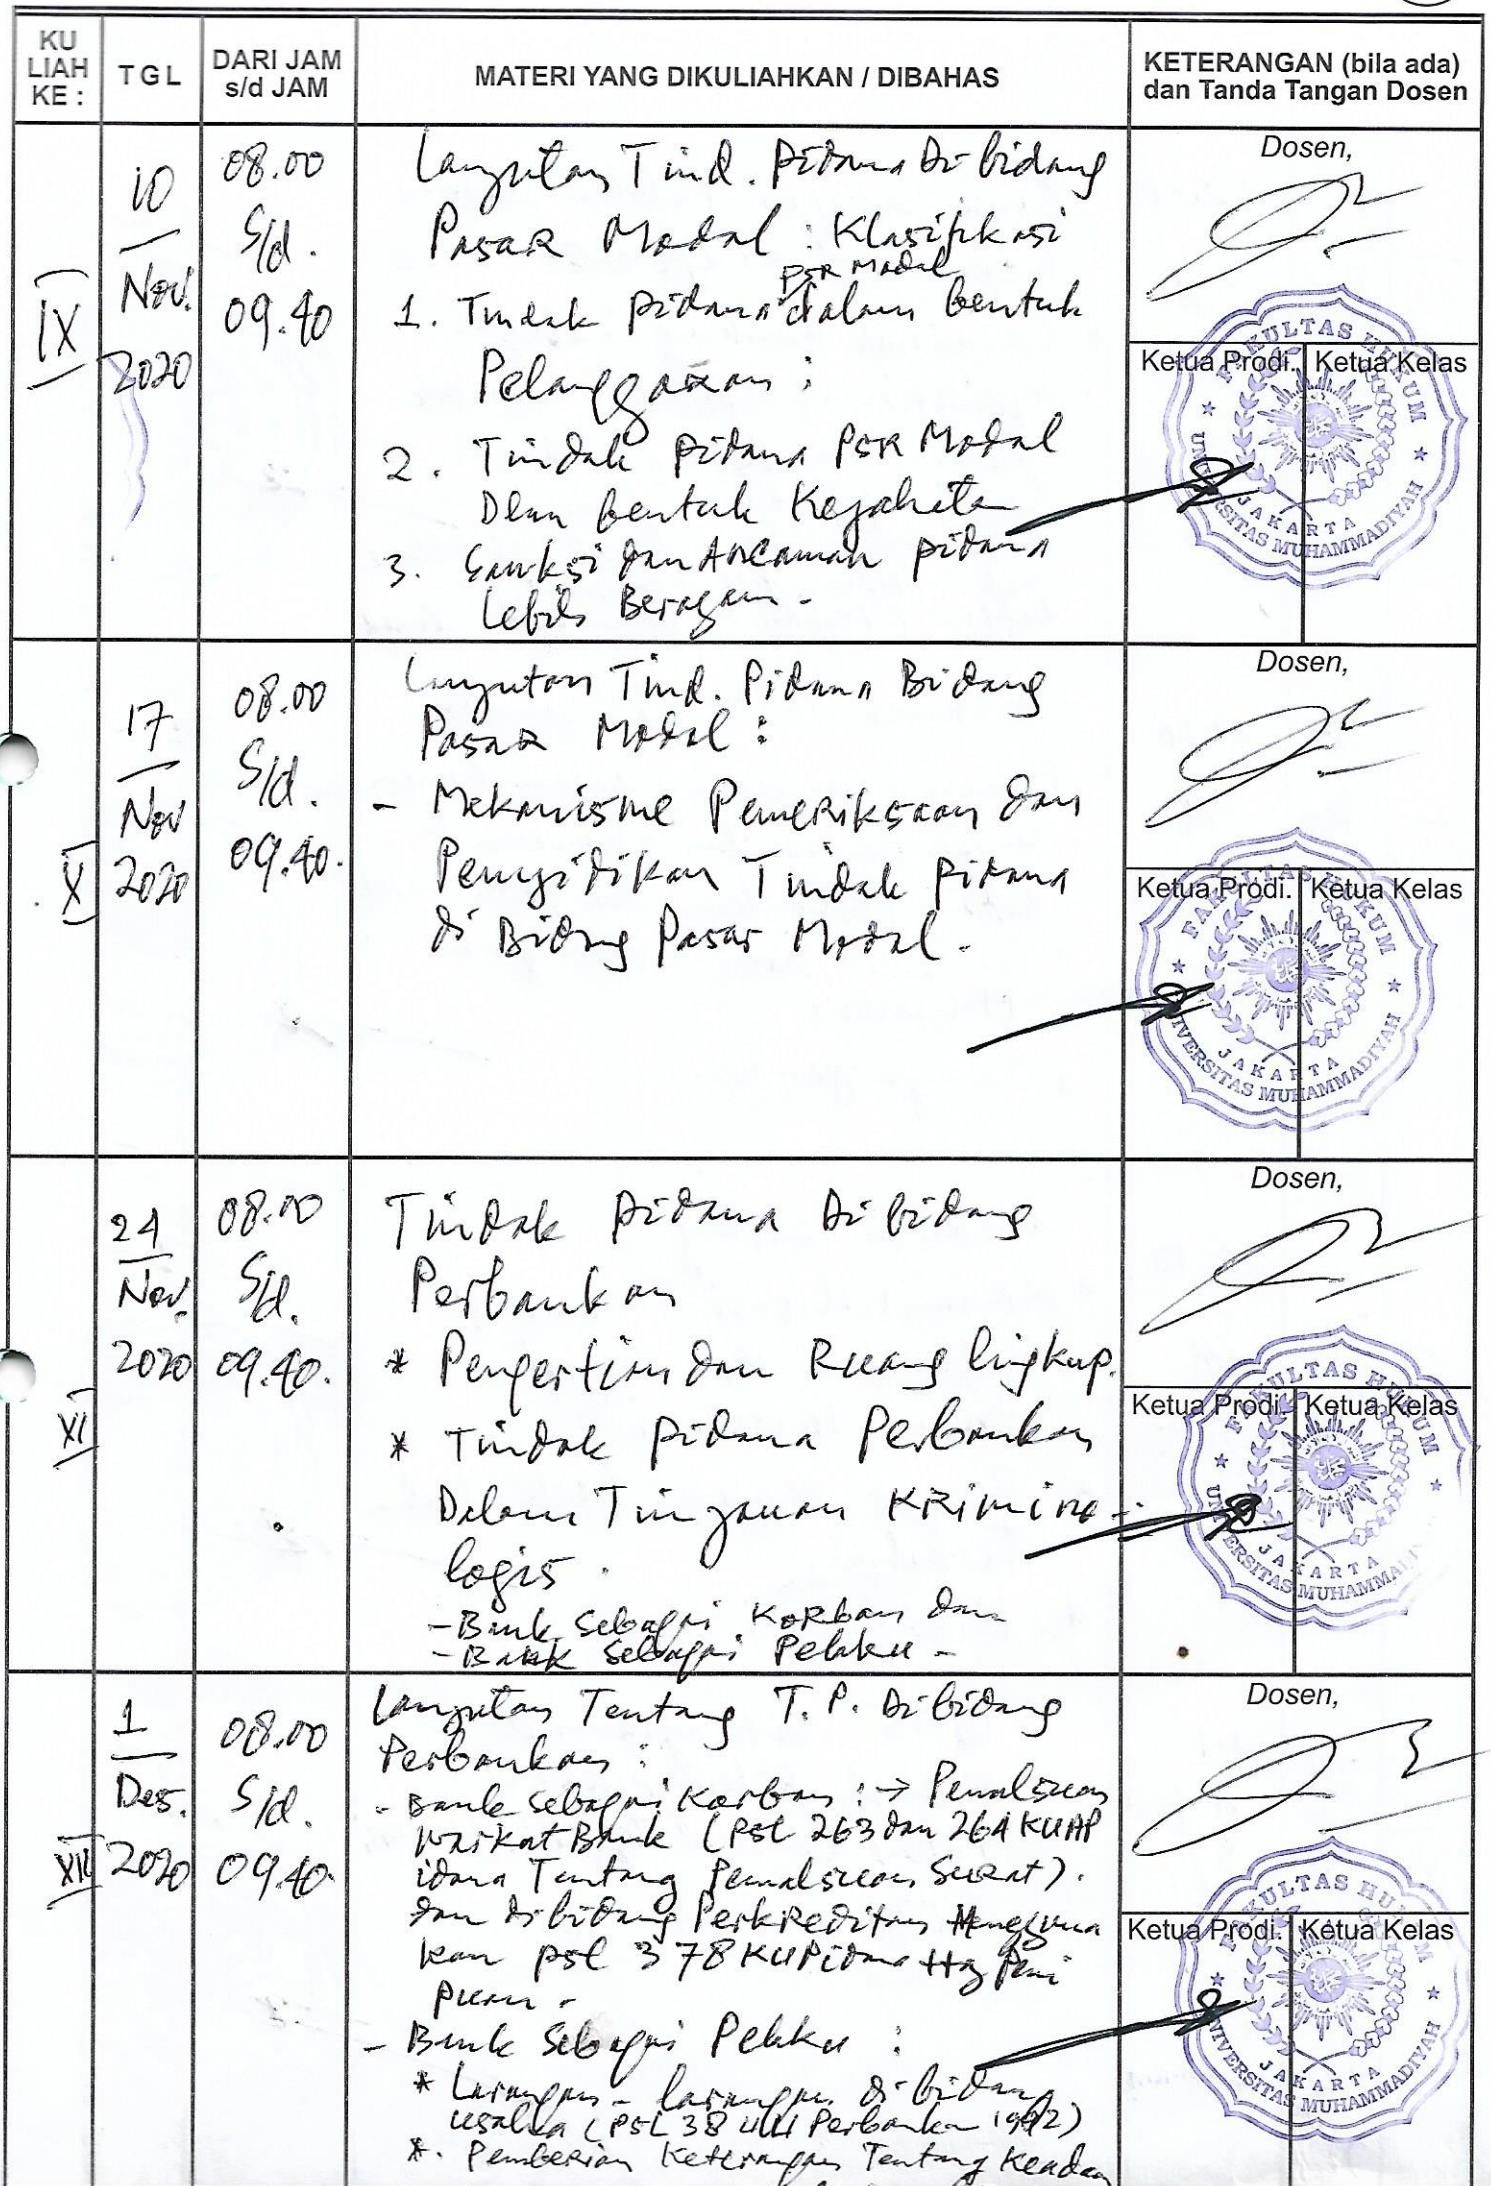 KU LIAH KE :
TGL
DARI JAM s/d JAM
MATERI YANG DIKULIAHKAN / DIBAHAS
KETERANGAN (bila ada) dan Tanda Tangan Dosen
IX
10
Nov.
2020
08.00
S/d.
09.40
Lanjutan Tind. Pidana Di bidang
Pasar Modal : Klasifikasi
psr Modal
1. Tindak pidana dalam bentuk
Pelanggaran :
2. Tindak pidana PSR Modal
Dlam bentuk Kejahatan
3. Sanksi dan Ancaman pidana
Lebih Beragam -
Dosen,
Ketua Prodi.
Ketua Kelas
FAKULTAS HUKUM
JAKARTA
UNIVERSITAS MUHAMMADIYAH
X
17
Nov
2020
08.00
S/d.
09.40.
Lanjutan Tind. Pidana Bidang
Pasar Modal :
- Mekanisme Pemeriksaan dan
Penyidikan Tindak pidana
di Bidang Pasar Modal -
Dosen,
Ketua Prodi.
Ketua Kelas
FAKULTAS HUKUM
JAKARTA
UNIVERSITAS MUHAMMADIYAH
XI
24
Nov.
2020
08.00
S/d.
09.40.
Tindak pidana Di bidang
Perbankan
* Pengertian dan Ruang lingkup.
* Tindak Pidana Perbankan
Dalam Tinjauan Krimino-
logis.
- Bank Sebagai Korban dan
- Bank Sebagai Pelaku -
Dosen,
Ketua Prodi.
Ketua Kelas
FAKULTAS HUKUM
JAKARTA
UNIVERSITAS MUHAMMADIYAH
XII
1
Des.
2020
08.00
S/d.
09.40.
Lanjutan Tentang T.P. Di bidang
Perbankan :
- Bank sebagai Korban : → Pemalsuan
Warkat Bank (psl 263 dan 264 KUHP
idana Tentang Pemalsuan Surat).
dan di bidang Perkreditan Mengguna
kan psl 378 KUPidana ttg Peni
puan -
- Bank Sebagai Pelaku :
* Larangan - larangan di bidang
usaha (PSL 38 UU Perbankan 1992)
*. Pemberian Keterangan Tentang Keadaan
Dosen,
Ketua Prodi.
Ketua Kelas
FAKULTAS HUKUM
JAKARTA
UNIVERSITAS MUHAMMADIYAH